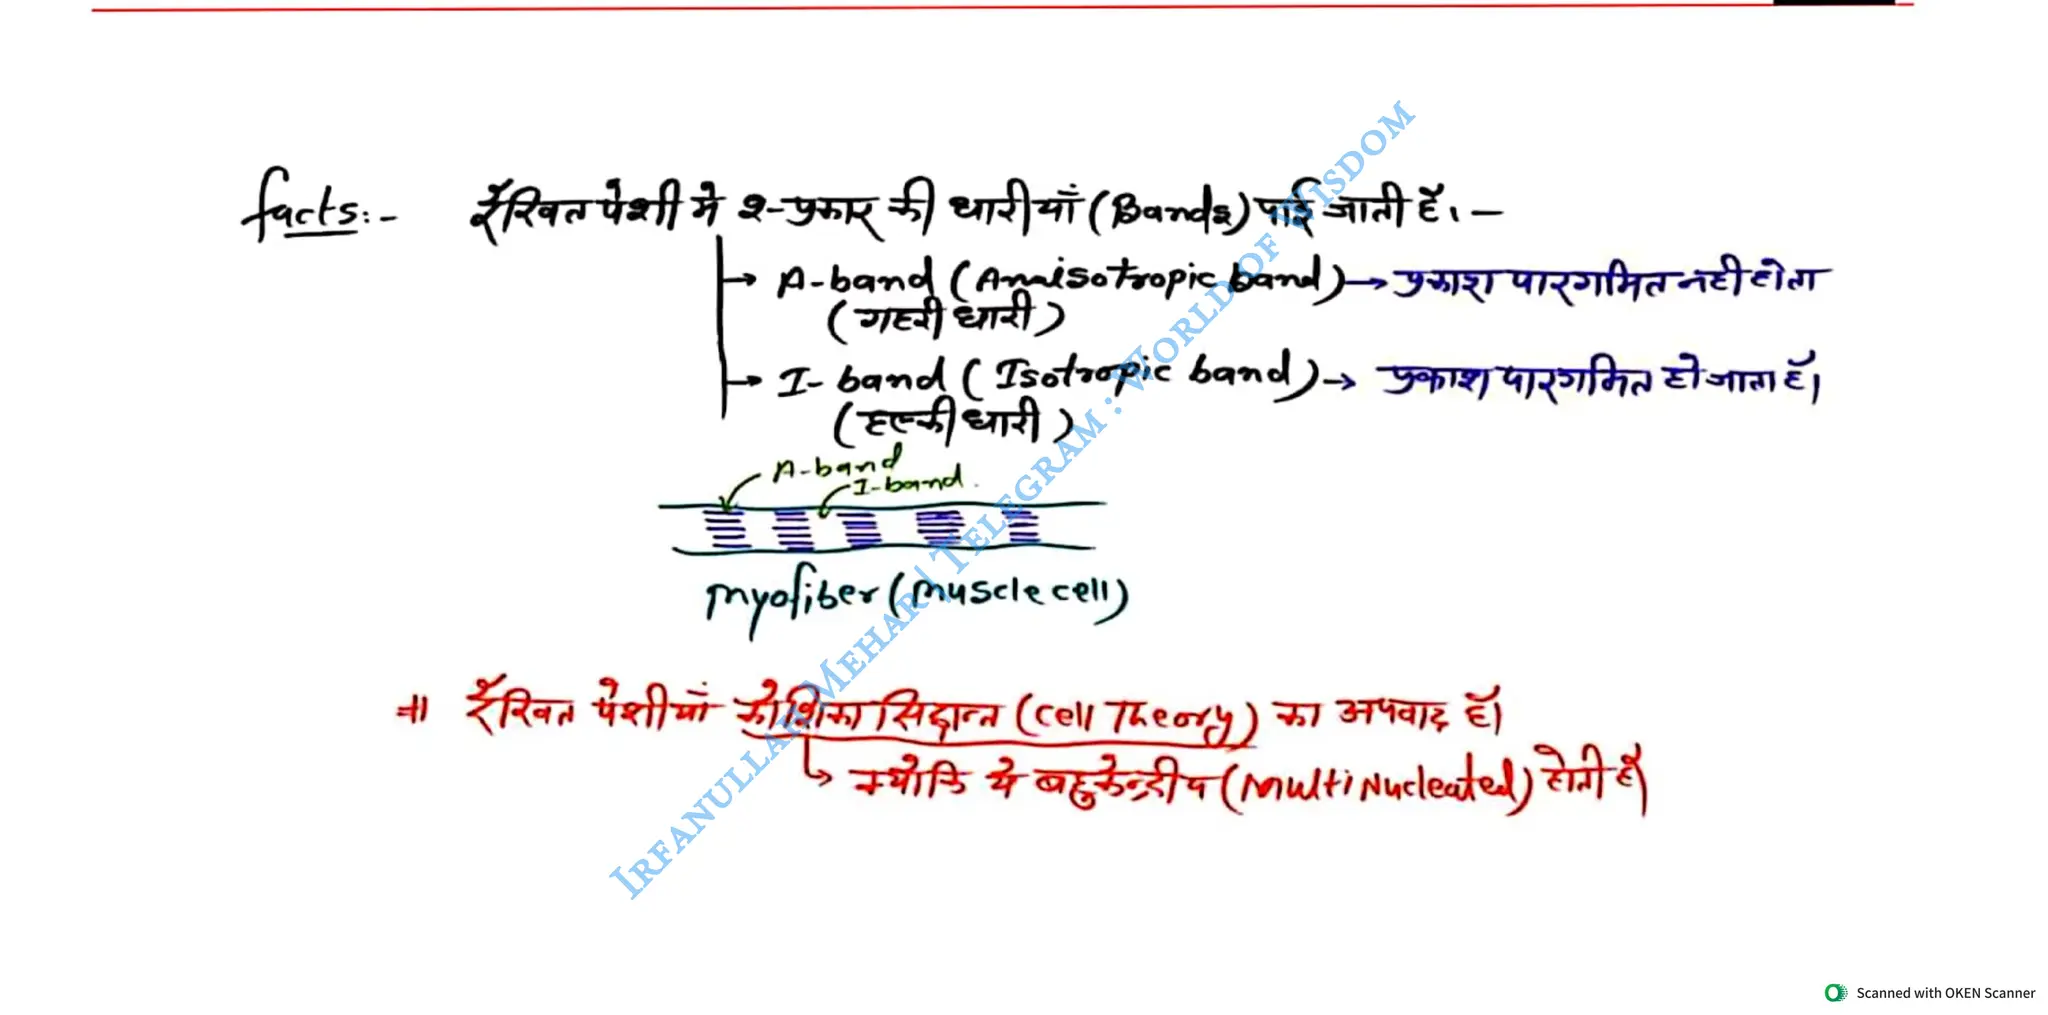 facts:- रैखित पेशी मे २-प्रकार की धारीयाँ (Bands) पाई जाती हैं। —
→ A-band (Annisotropic band) → प्रकाश पारगमित नही होता
(गहरी धारी)
→ I-band (Isotropic band) → प्रकाश पारगमित हो जाता है।
(हल्की धारी)
A-band
I-band.
myofiber (muscle cell)
⇒ रैखित पेशीयाँ कोशिका सिद्धान्त (cell Theory) का अपवाद है।
↳ क्योकि ये बहुकेन्द्रीय (Multi Nucleated) होती है
IRFANULLAH MEHAR | TELEGRAM : WORLD OF WISDOM
Scanned with OKEN Scanner